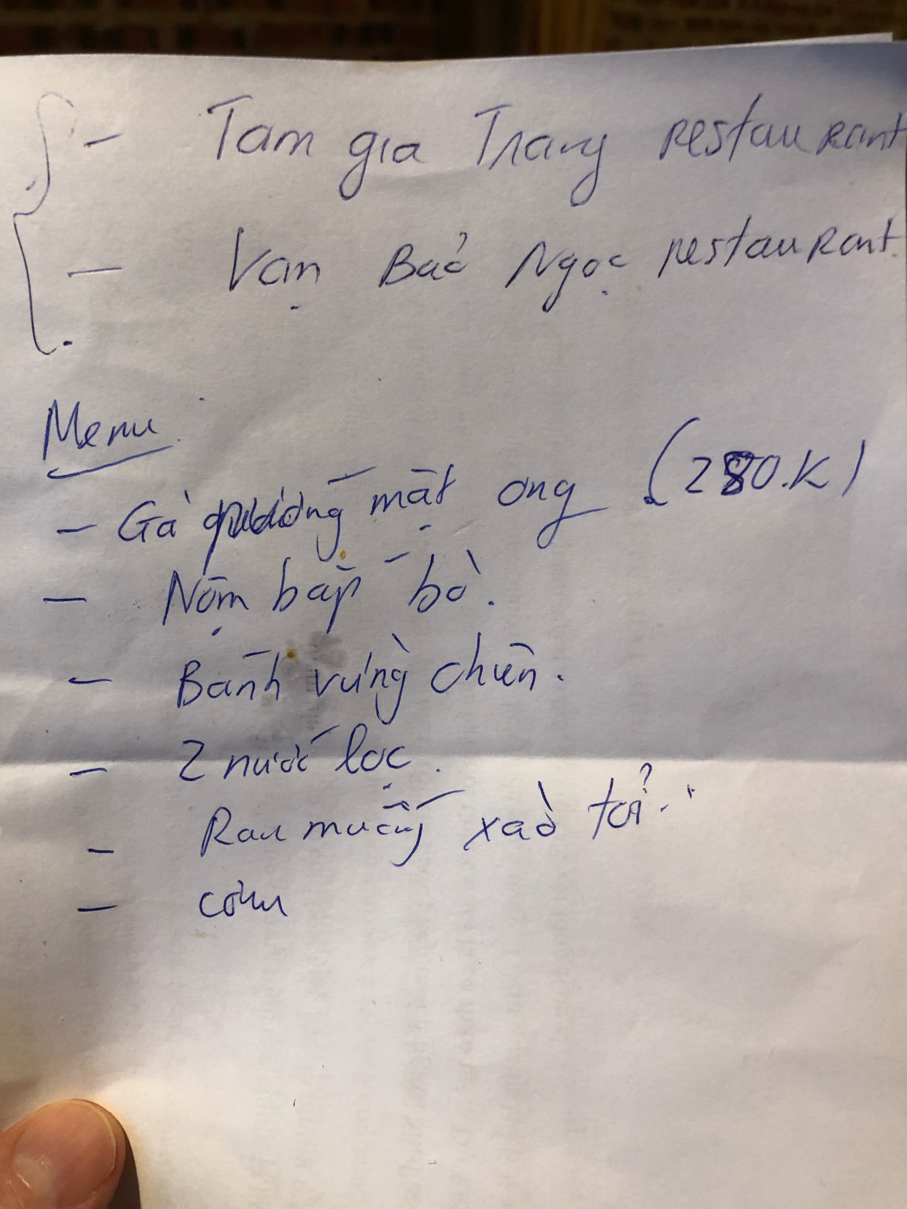 - Tam gia Trang restaurant
- Vạn Bảo Ngọc restaurant.
Menu:
- Gà nướng mật ong (280.K)
- Nộm bắp bò.
- Bánh vừng chiên.
- 2 nước lọc.
- Rau muống xào tỏi.
- cơm